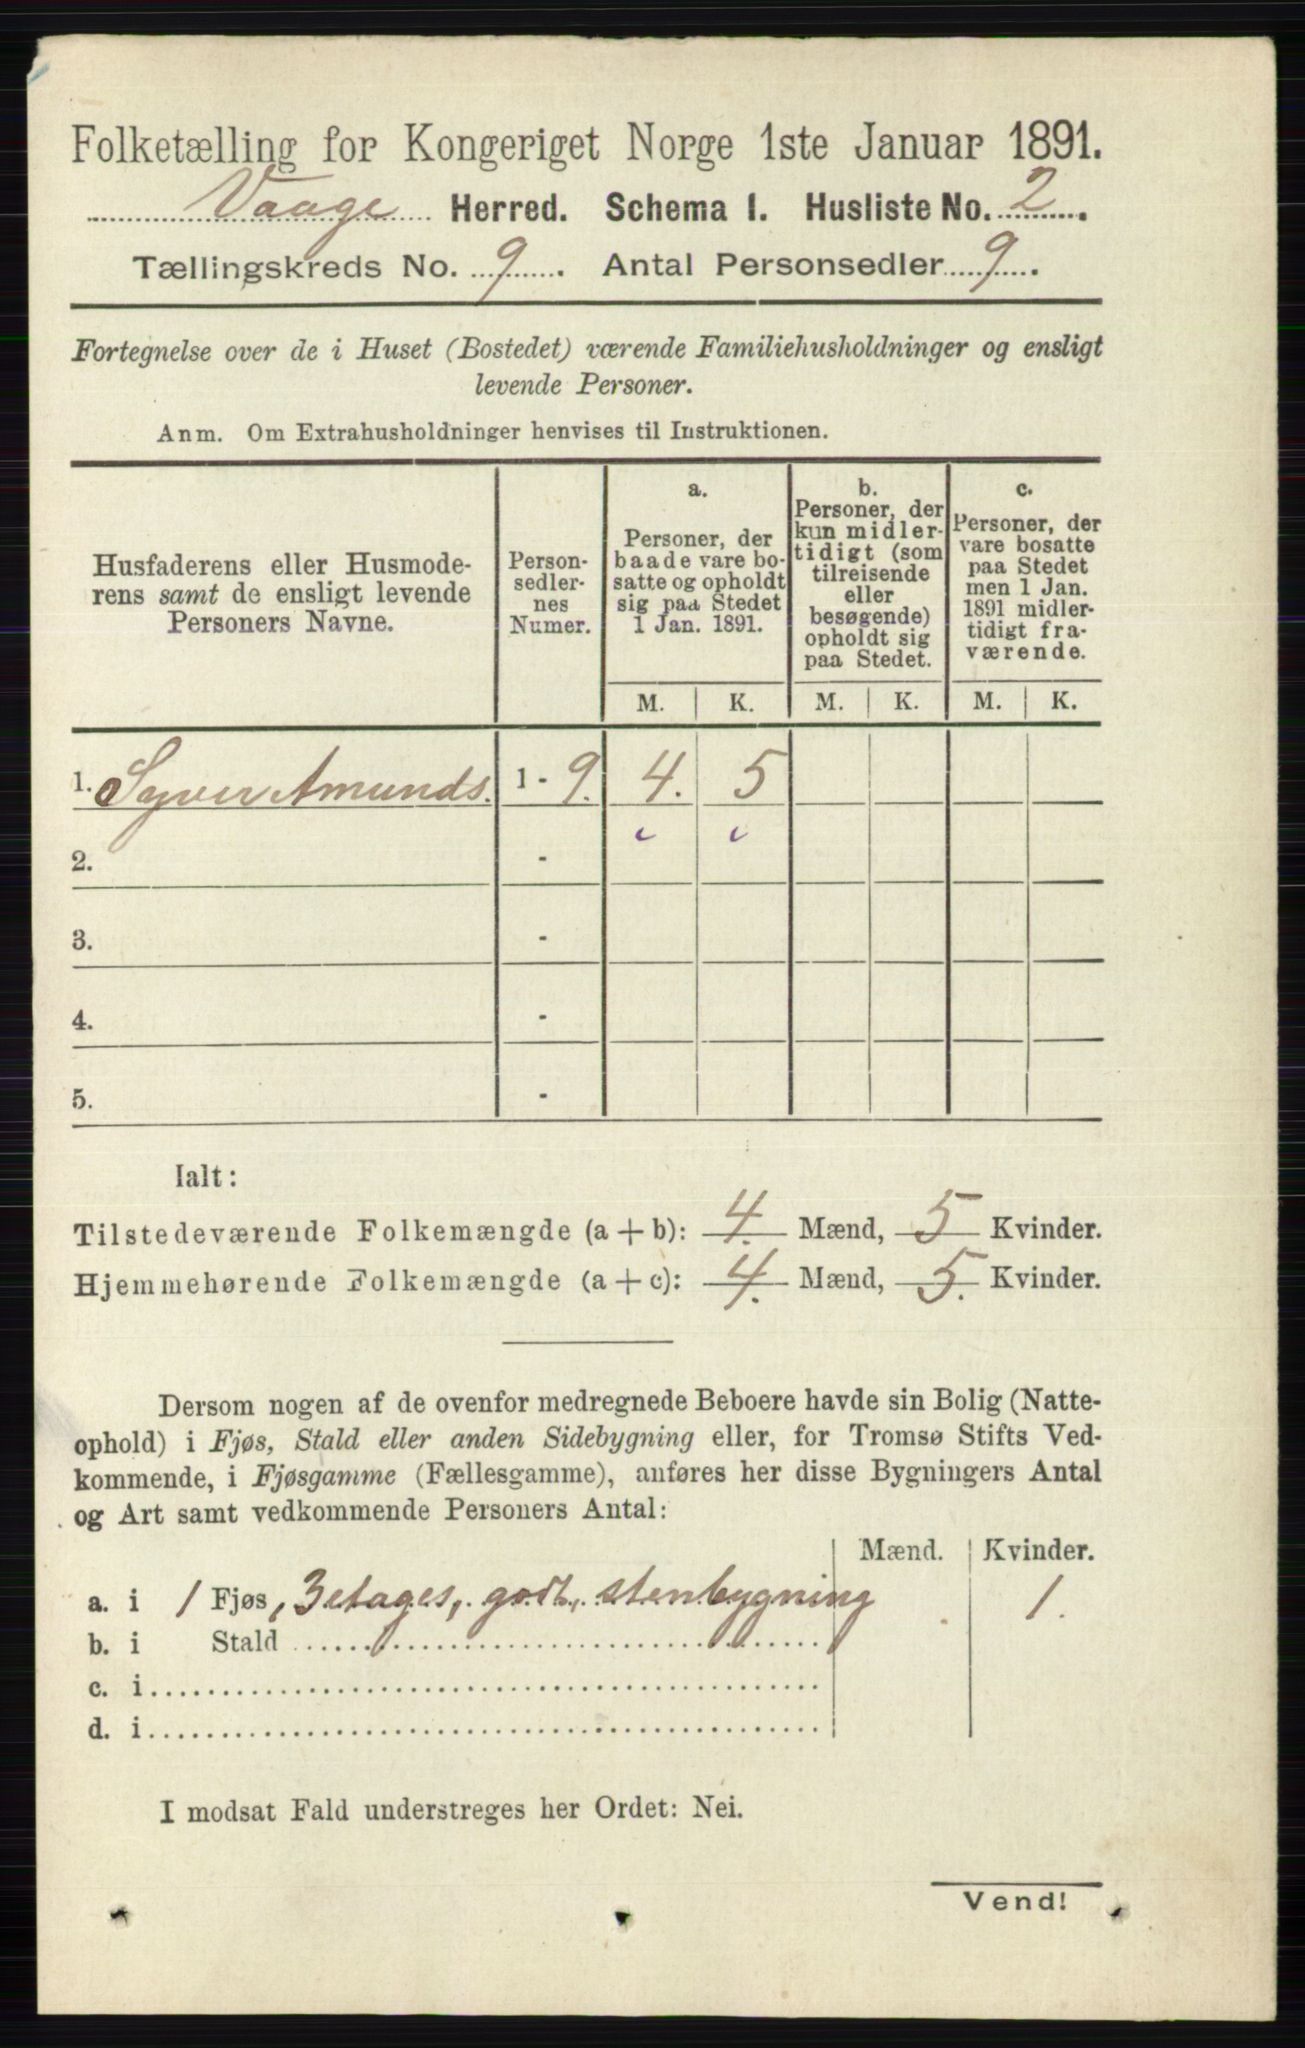 Folketælling for Kongeriget Norge 1ste Januar 1891.
Vaage Herred. Schema I. Husliste No. 2.
Tællingskreds No. 9. Antal Personsedler 9.
Fortegnelse over de i Huset (Bostedet) værende Familiehusholdninger og ensligt
levende Personer.
Anm. Om Extrahusholdninger henvises til Instruktionen.
Husfaderens eller Husmode-
rens samt de ensligt levende
Personers Navne.
Person-
sedler-
nes
Numer.
a.
Personer, der
baade vare bo-
satte og opholdt
sig paa Stedet
1 Jan. 1891.
b.
Personer, der
kun midler-
tidigt (som
tilreisende
eller
besøgende)
opholdt sig
paa Stedet.
c.
Personer, der
vare bosatte
paa Stedet
men 1 Jan.
1891 midler-
tidigt fra-
værende.
M. K. M. K. M. K.
1. Syver Amunds. 1 - 9. 4. 5
2. -
3. -
4. -
5. -
Ialt:
Tilstedeværende Folkemængde (a + b): 4. Mænd, 5 Kvinder.
Hjemmehørende Folkemængde (a + c): 4. Mænd, 5. Kvinder.
Dersom nogen af de ovenfor medregnede Beboere havde sin Bolig (Natte-
ophold) i Fjøs, Stald eller anden Sidebygning eller, for Tromsø Stifts Ved-
kommende, i Fjøsgamme (Fællesgamme), anføres her disse Bygningers Antal
og Art samt vedkommende Personers Antal:
Mænd. Kvinder.
a. i 1 Fjøs, 3 etages, godt, stenbygning 1.
b. i Stald
c. i
d. i
I modsat Fald understreges her Ordet: Nei.
Vend!